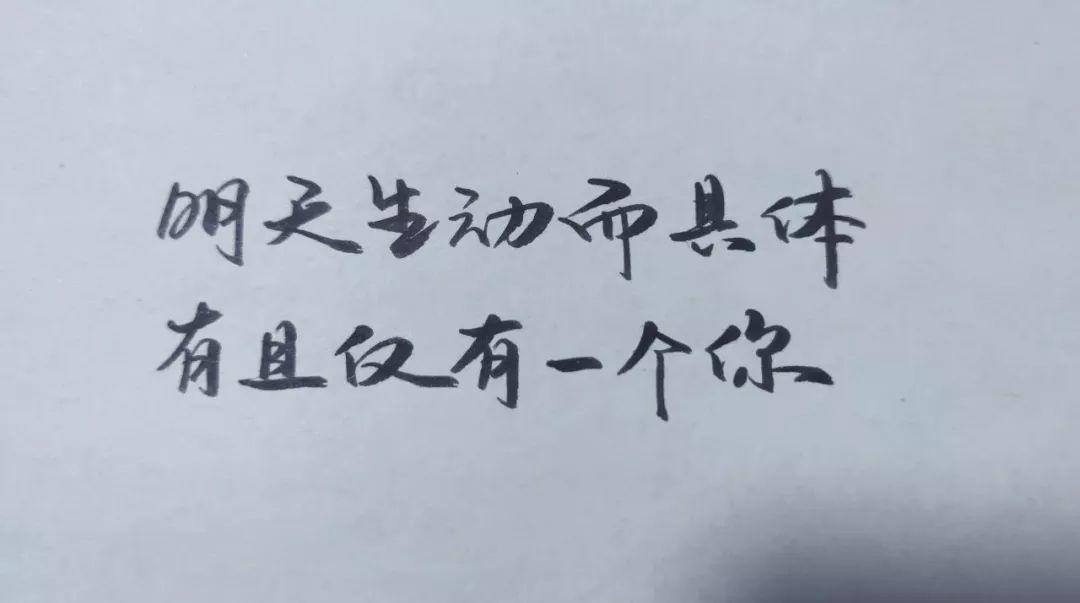 明天生动而具体
有且仅有一个你